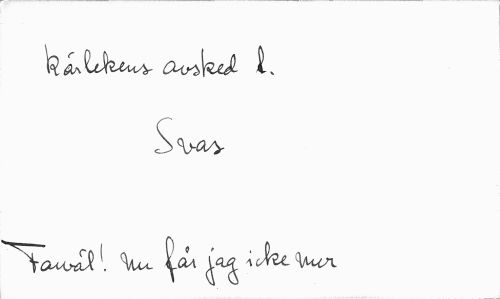 Kärlekens avsked 1.
Svas
Farväl! Nu får jag icke mer